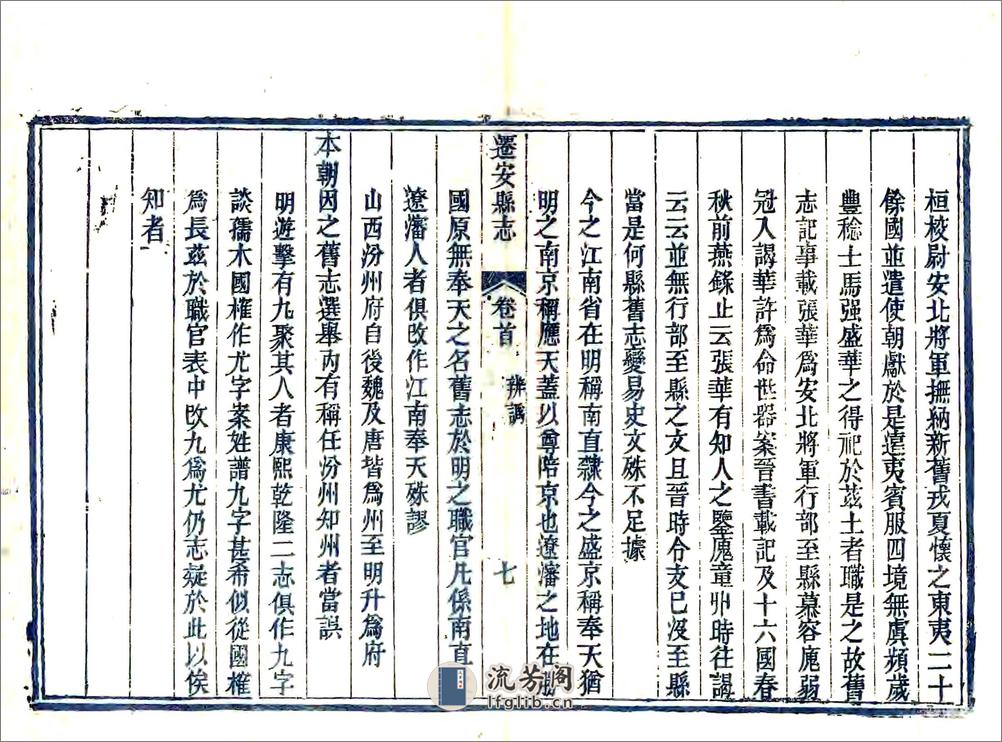 桓校尉安北將軍撫納新舊戎夏懷之東夷二十
餘國並遣使朝獻於是遠夷賓服四境無虞頻歲
豐稔士馬强盛華之得祀於茲土者職是之故舊
志記事載張華爲安北將軍行部至縣慕容廆弱
冠入謁華許爲命世器案晉書載記及十六國春
秋前燕錄止云張華有知人之鑒廆童丱時往謁
云云並無行部至縣之文且晉時令支已沒至縣
當是何縣舊志變易史文殊不足據
今之江南省在明稱南直隸今之盛京稱奉天猶
明之南京稱應天蓋以尊陪京也遼瀋之地在勝
遷安縣志
卷首 辨譌
七
國原無奉天之名舊志於明之職官凡係南直
遼瀋人者俱改作江南奉天殊謬
山西汾州府自後魏及唐皆爲州至明升爲府
本朝因之舊志選舉內有稱任汾州知州者當誤
明遊擊有九聚其人者康熙乾隆二志俱作九字
談孺木國榷作尤字案姓譜九字甚希似從國榷
爲長茲於職官表中改九爲尤仍志疑於此以俟
知者
流芳阁
lfglib.cn